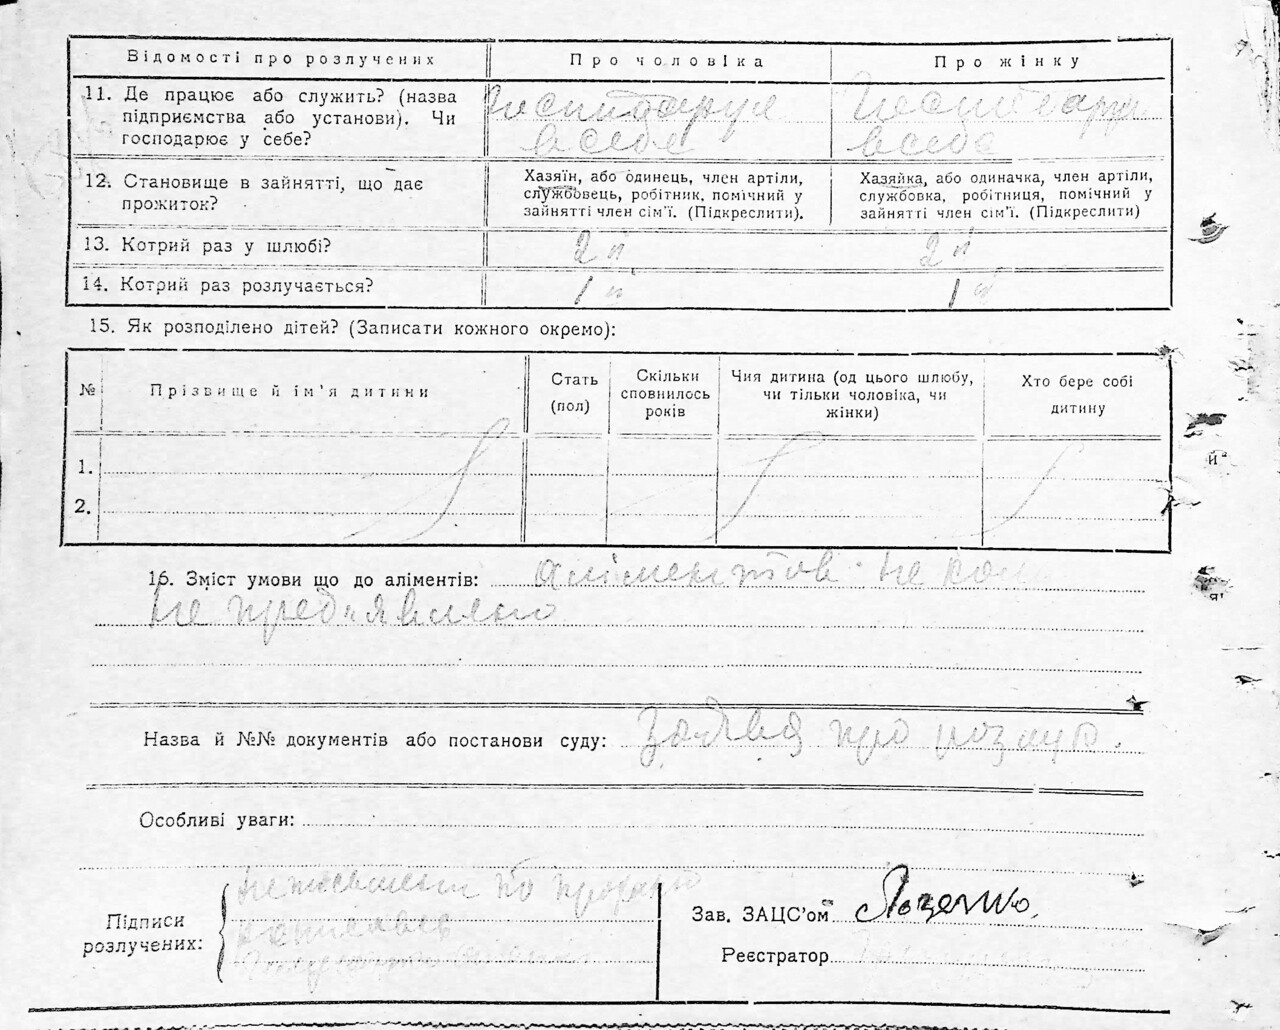 Відомості про розлучених
Про чоловіка
Про жінку
11. Де працює або служить? (назва
підприємства або установи). Чи
господарює у себе?
в себе
в себе
12. Становище в зайнятті, що дає
прожиток?
Хазяїн, або одинець, член артілі,
службовець, робітник, помічний у
зайнятті член сім'ї. (Підкреслити).
Хазяйка, або одиначка, член артілі,
службовка, робітниця, помічний у
зайнятті член сім'ї. (Підкреслити)
13. Котрий раз у шлюбі?
2й
2й
14. Котрий раз розлучається?
1й
1й
15. Як розподілено дітей? (Записати кожного окремо):
№
Прізвище й ім'я дитини
Стать
(пол)
Скільки
сповнилось
років
Чия дитина (од цього шлюбу,
чи тільки чоловіка, чи
жінки)
Хто бере собі
дитину
1.
2.
16. Зміст умови що до аліментів: аліментов не
не пред'явлено
Назва й №№ документів або постанови суду: Заява про розлуб.
Особливі уваги:
Підписи
розлучених:
Зав. ЗАЦС'ом
Реєстратор
й
я!